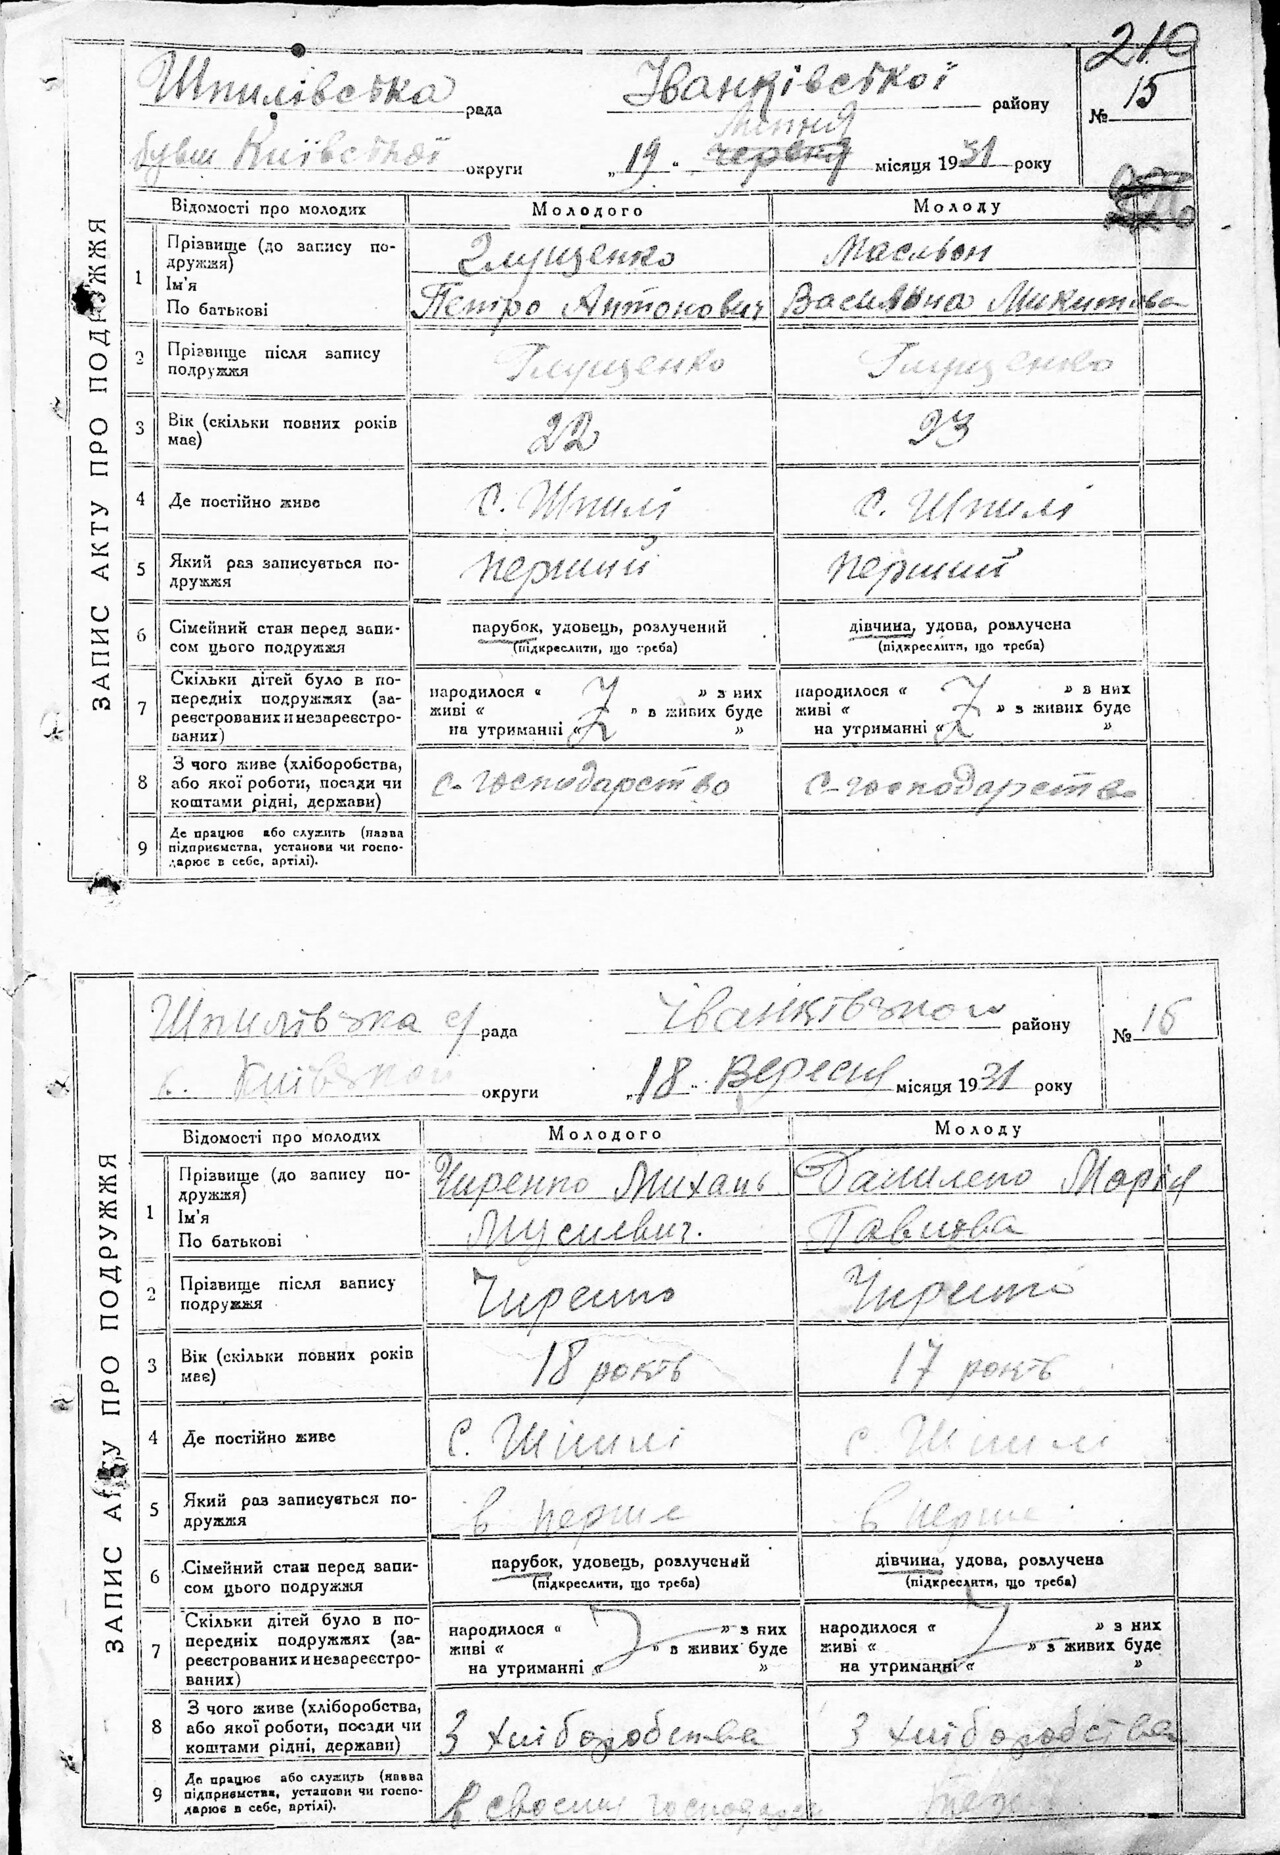 210
Шпилівська рада Іванківської району № 15
бувш Київської округи „19" липня червня місяця 1931 року
ЗАПИС АКТУ ПРО ПОДРУЖЖЯ
Відомості про молодих Молодого Молоду
1 Прізвище (до запису подружжя) Глущенко
Ім'я
По батькові Петро Антонович Микитова
2 Прізвище після запису подружжя Глущенко Глущенко
3 Вік (скільки повних років має) 22 23
4 Де постійно живе с. Шпилі с. Шпилі
5 Який раз записується подружжя перший перший
6 Сімейний стан перед записом цього подружжя парубок, удовець, розлучений дівчина, удова, розлучена
(підкреслити, що треба) (підкреслити, що треба)
7 Скільки дітей було в попередніх подружжях (зареєстрованих и незареєстрованих) народилося « » з них народилося « » з них
живі « » з живих буде живі « » з живих буде
на утриманні « » на утриманні « »
8 З чого живе (хліборобства, або якої роботи, посади чи коштами рідні, держави) с-господарство с-господарство
9 Де працює або служить (назва підприємства, установи чи господарює в себе, артілі).
Шпилівська с/ рада Іванківської району № 16
б. Київської округи „18" Вересня місяця 1931 року
ЗАПИС АКТУ ПРО ПОДРУЖЖЯ
Відомості про молодих Молодого Молоду
1 Прізвище (до запису подружжя) Чиренко Михаль Данилено Марія
Ім'я
По батькові Мусиевич. Павлова
2 Прізвище після запису подружжя Чиренко Чиренко
3 Вік (скільки повних років має) 18 років 17 років
4 Де постійно живе с. Шпилі с. Шпилі
5 Який раз записується подружжя в перше в перше
6 Сімейний стан перед записом цього подружжя парубок, удовець, розлучений дівчина, удова, розлучена
(підкреслити, що треба) (підкреслити, що треба)
7 Скільки дітей було в попередніх подружжях (зареєстрованих и незареєстрованих) народилося « » з них народилося « » з них
живі « » з живих буде живі « » з живих буде
на утриманні « » на утриманні « »
8 З чого живе (хліборобства, або якої роботи, посади чи коштами рідні, держави) З хліборобства З хліборобства
9 Де працює або служить (назва підприємства, установи чи господарює в себе, артілі). в своєму